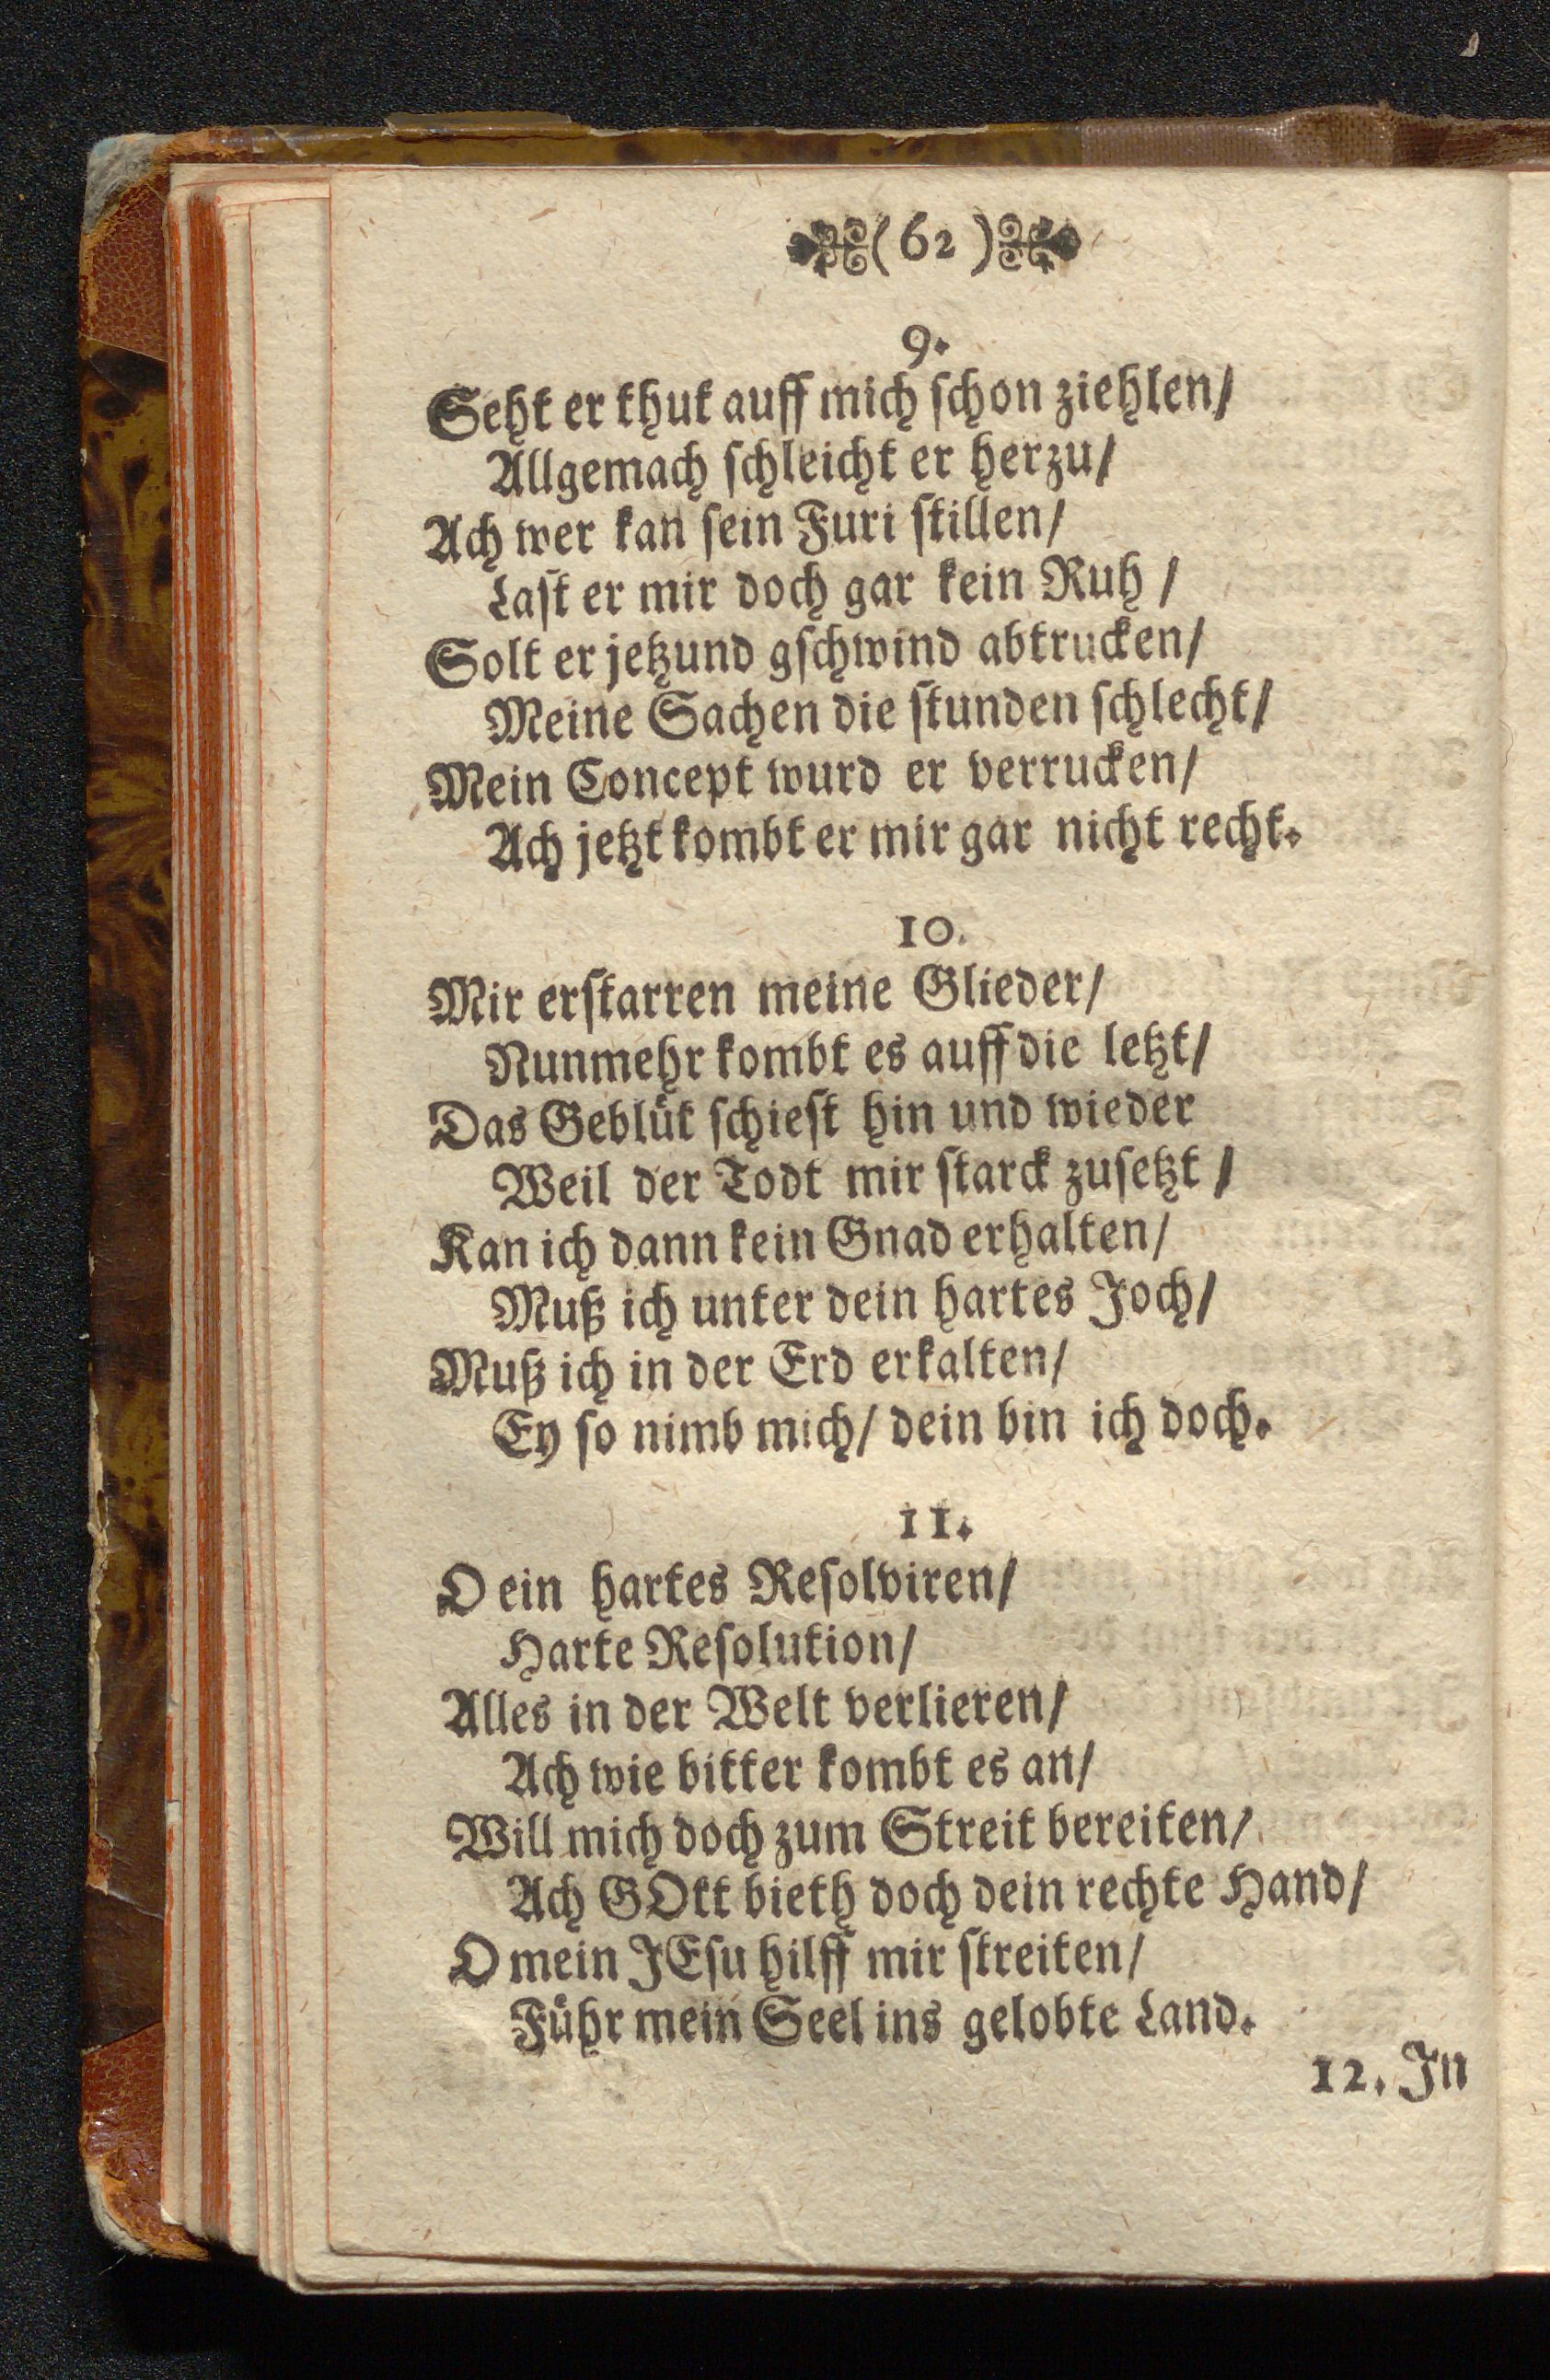 (62)
9.
Seht er thut auff mich ſchon ziehlen/
Allgemach ſchleicht er herzu/
Ach wer kan ſein Furi ſtillen/
Laſt er mir doch gar kein Ruh /
Solt er jetzund gſchwind abtrucken/
Meine Sachen die ſtunden ſchlecht/
Mein Concept wurd er verrucken/
Ach jetzt kombt er mir gar nicht recht.
10.
Mir erſtarren meine Glieder/
Nunmehr kombt es auff die letzt/
Das Geblüt ſchieſt hin und wieder
Weil der Todt mir ſtarck zuſetzt /
Kan ich dann kein Gnad erhalten/
Muß ich unter dein hartes Joch/
Muß ich in der Erd erkalten/
Ey ſo nimb mich/ dein bin ich doch.
11.
O ein hartes Reſolviren/
Harte Reſolution/
Alles in der Welt verlieren/
Ach wie bitter kombt es an/
Will mich doch zum Streit bereiten/
Ach GOtt bieth doch dein rechte Hand/
O mein JEſu hilff mir ſtreiten/
Führ mein Seel ins gelobte Land.
12. Jn